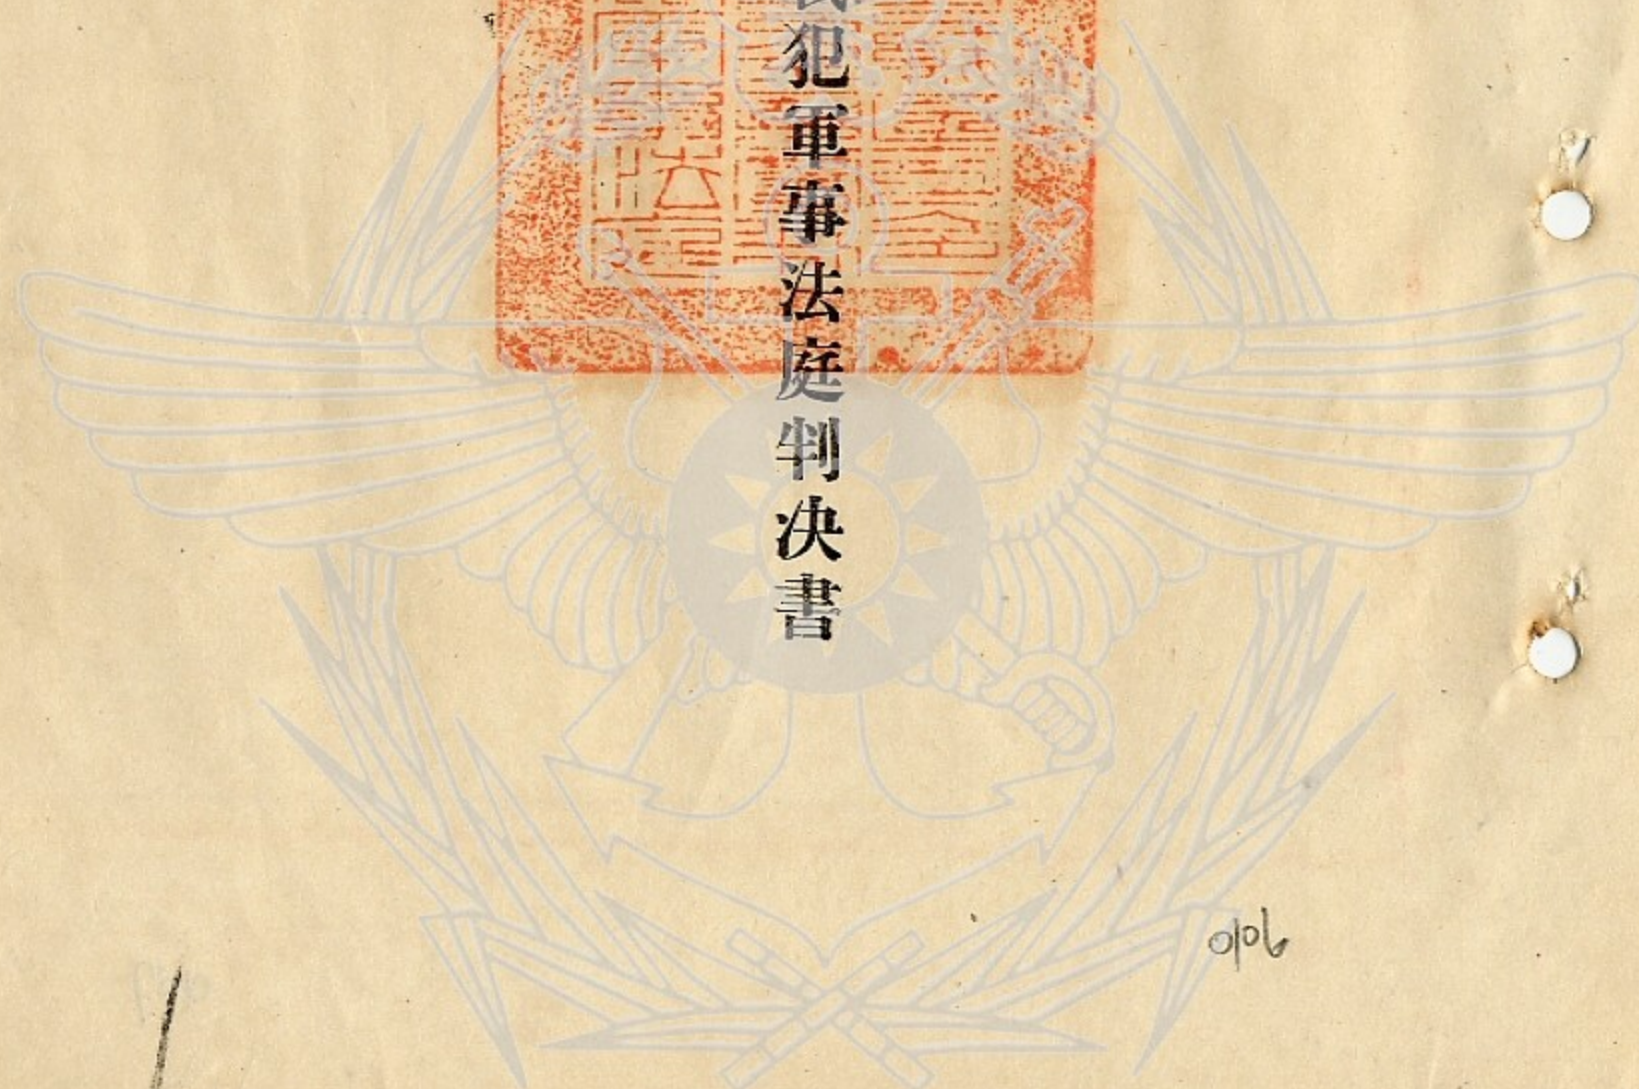 犯軍事法庭判決書
0106